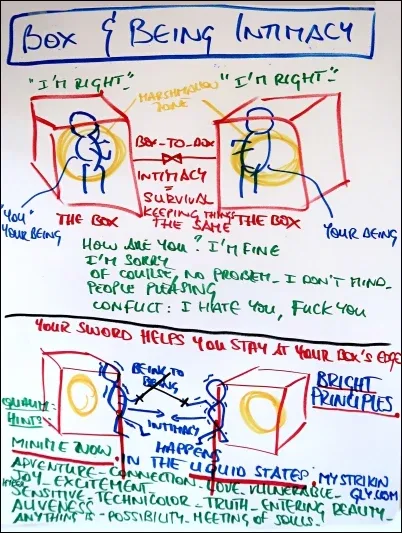 BOX & BEING INTIMACY
"I'M RIGHT"
"I'M RIGHT"
MARSHMALLOW
ZONE
BOX-TO-BOX
INTIMACY
=
SURVIVAL
KEEPING THINGS
THE SAME
"YOU"
YOUR BEING
THE BOX
THE BOX
YOUR BEING
HOW ARE YOU? I'M FINE
I'M SORRY
OF COURSE, NO PROBLEM_ I DON'T MIND_
PEOPLE PLEASING
CONFLICT: I HATE YOU, FUCK YOU
YOUR SWORD HELPS YOU STAY AT YOUR BOX'S EDGE
BEING TO
BEING
INTIMACY
HAPPENS
IN THE LIQUID STATES.
BRIGHT
PRINCIPLES.
HINT:
MINIMIZE NOW.
MYSTRIKIN
GLY.COM
ADVENTURE_ CONNECTION_ LOVE_ VULNERABLE_
JOY_ EXCITEMENT_
SENSITIVE_ TECHNICOLOR_ TRUTH_ ENTERING BEAUTY_
ALIVENESS_
ANYTHING IS_ POSSIBILITY_ MEETING OF SOULS_!